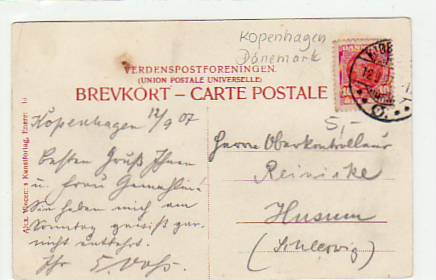 Kopenhagen
Dänemark
VERDENSPOSTFORENINGEN.
(UNION POSTALE UNIVERSELLE)
BREVKORT – CARTE POSTALE
Kopenhagen 12/9 07
besten Gruß Ihnen
u. Frau Gemahlin!
Sie haben mich am
Sonntag gewiß gar
nicht entbehrt.
Ihr
5,-
Herrn Oberkontrolleur
Reinicke
Husum
(Schleswig)